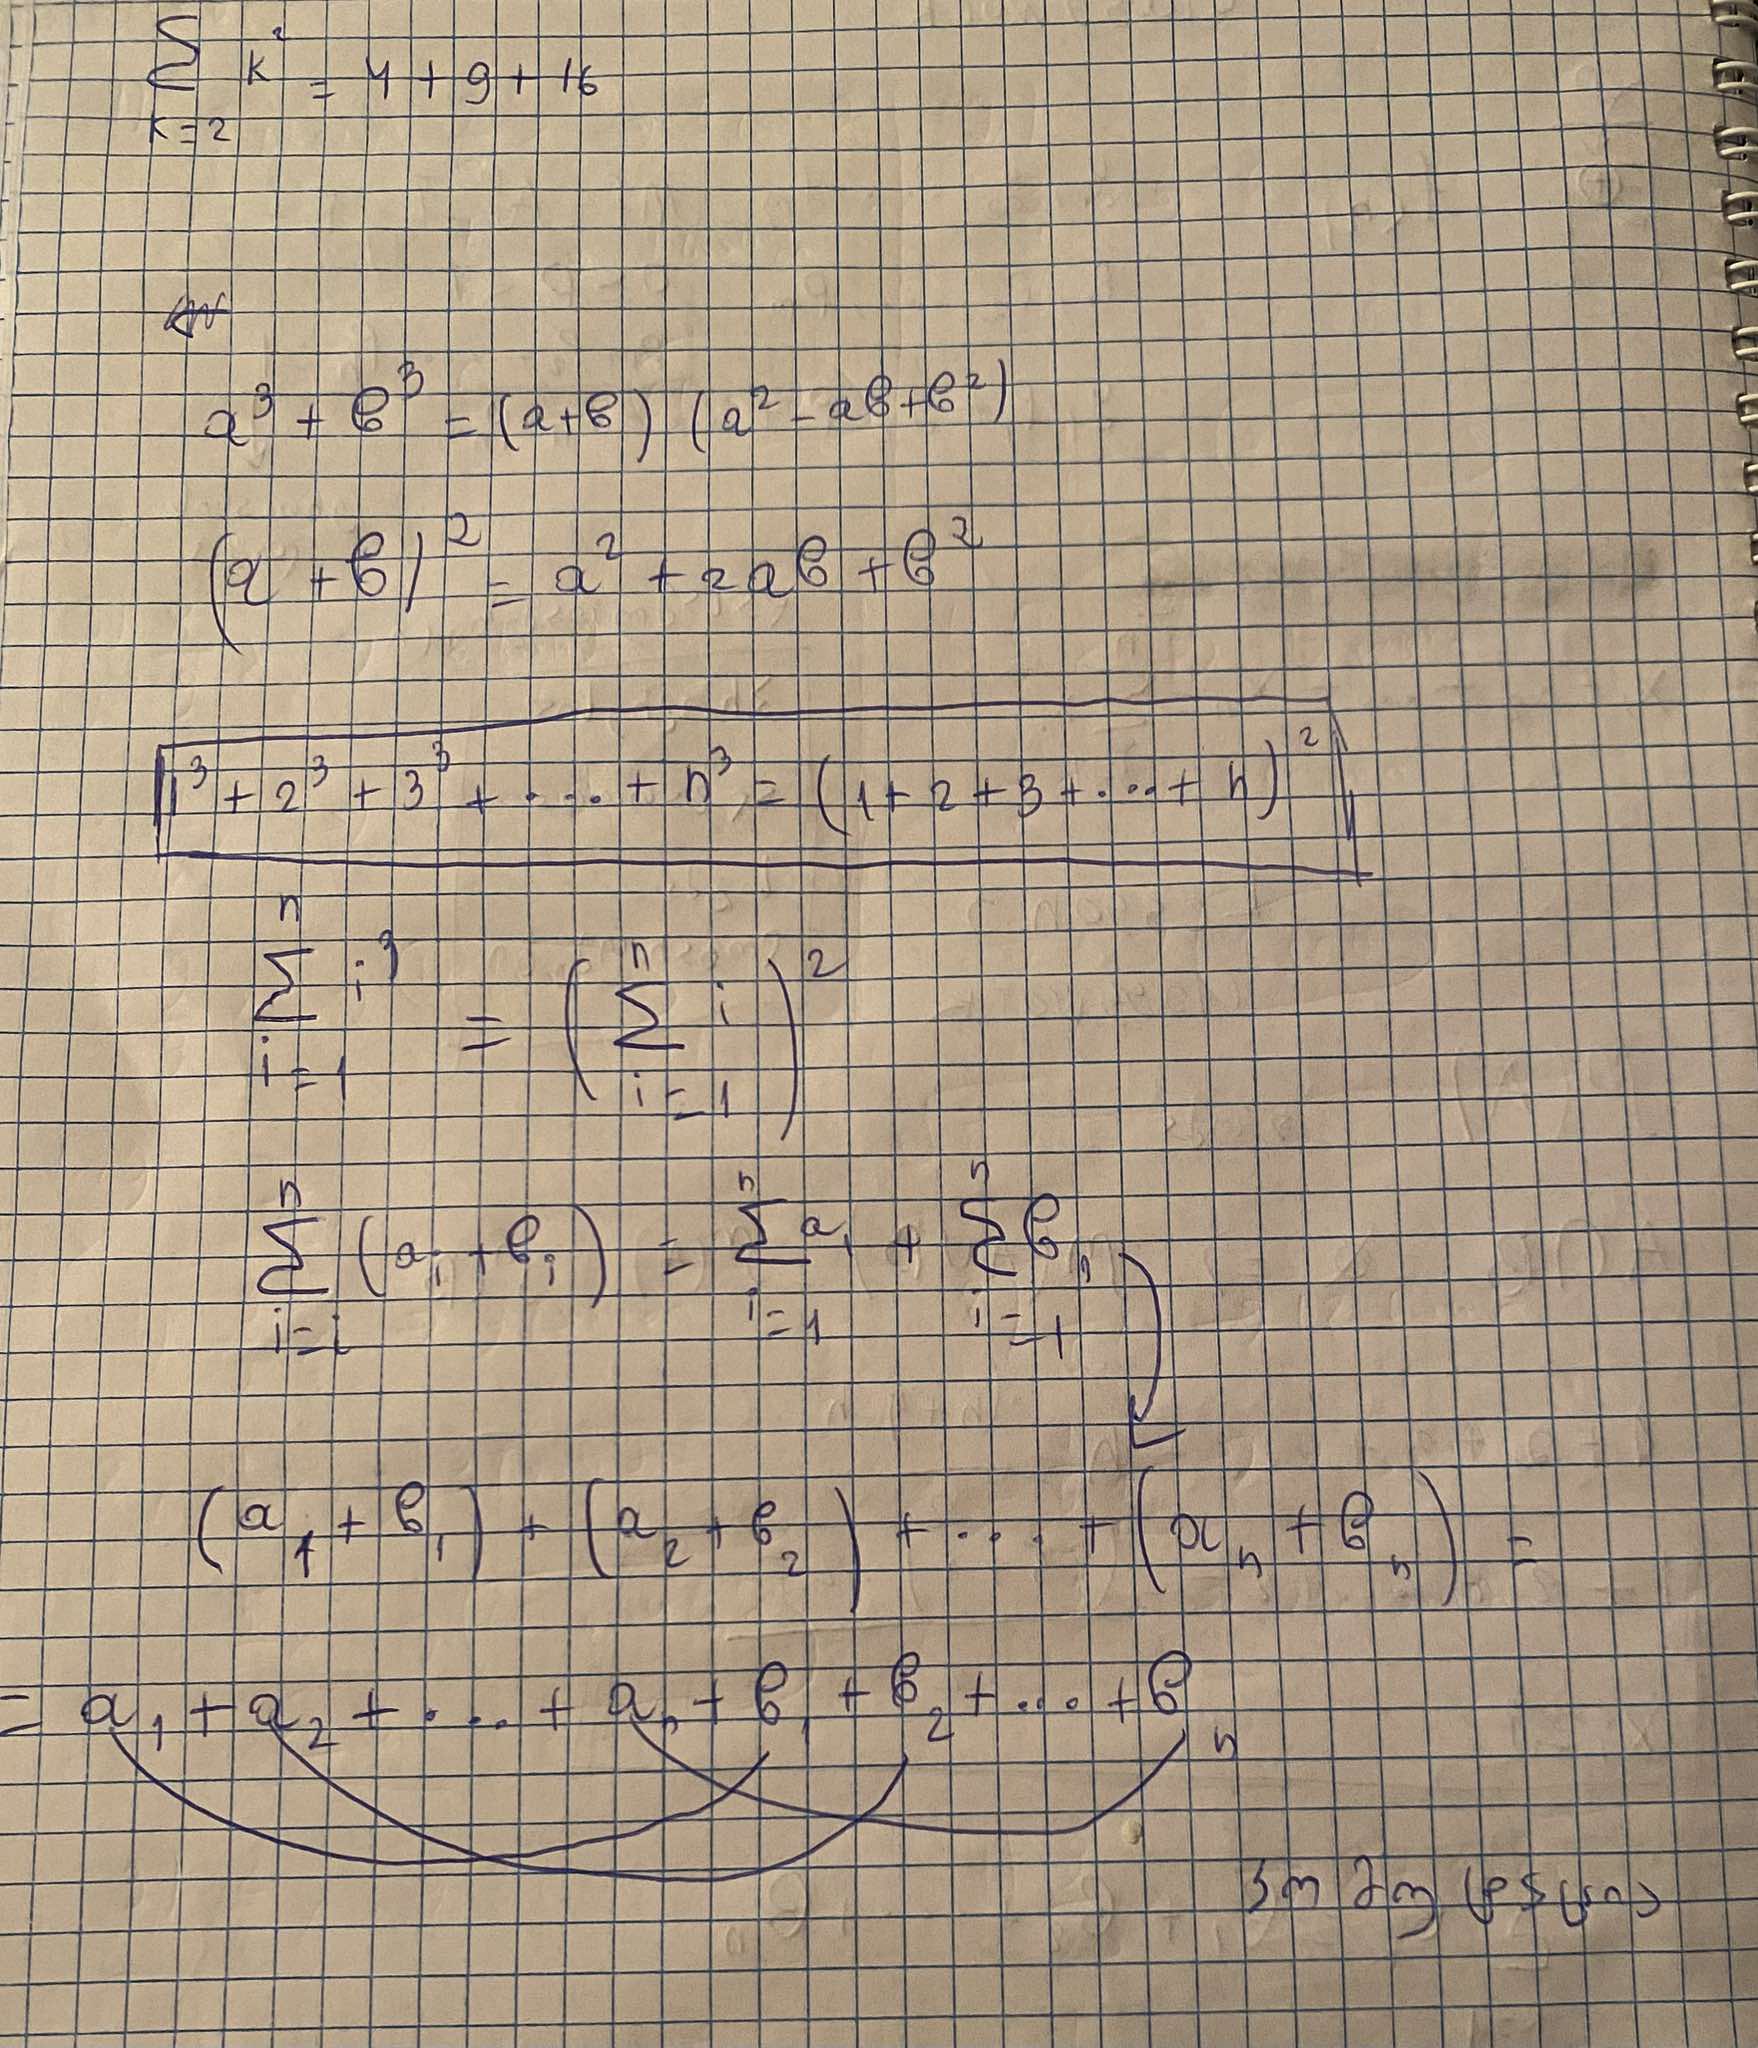 ∑ k² = 4 + 9 + 16
k=2
a³ + b³ = (a+b) (a² - ab + b²)
(a + b)² = a² + 2ab + b²
1³ + 2³ + 3³ + .... + n³ = (1 + 2 + 3 + .... + n)²
n n
∑ i³ = (∑ i)²
i=1 i=1
n n n
∑ (aᵢ + bᵢ) = ∑ aᵢ + ∑ bₙ
i=i i=1 i=1
(a₁ + b₁) + (a₂ + b₂) + .... + (aₙ + bₙ) =
= a₁ + a₂ + .... + aₙ + b₁ + b₂ + .... + bₙ